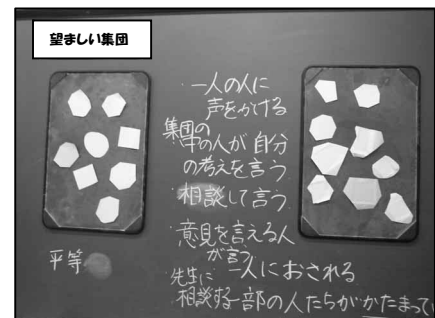 望ましい集団
一人の人に
声をかける
集団の
中の人が自分
の考えを言う
相談して言う
意見を言える人
が言う
平等
先生に
相談する
一人におされる
一部の人たちがかたまってい